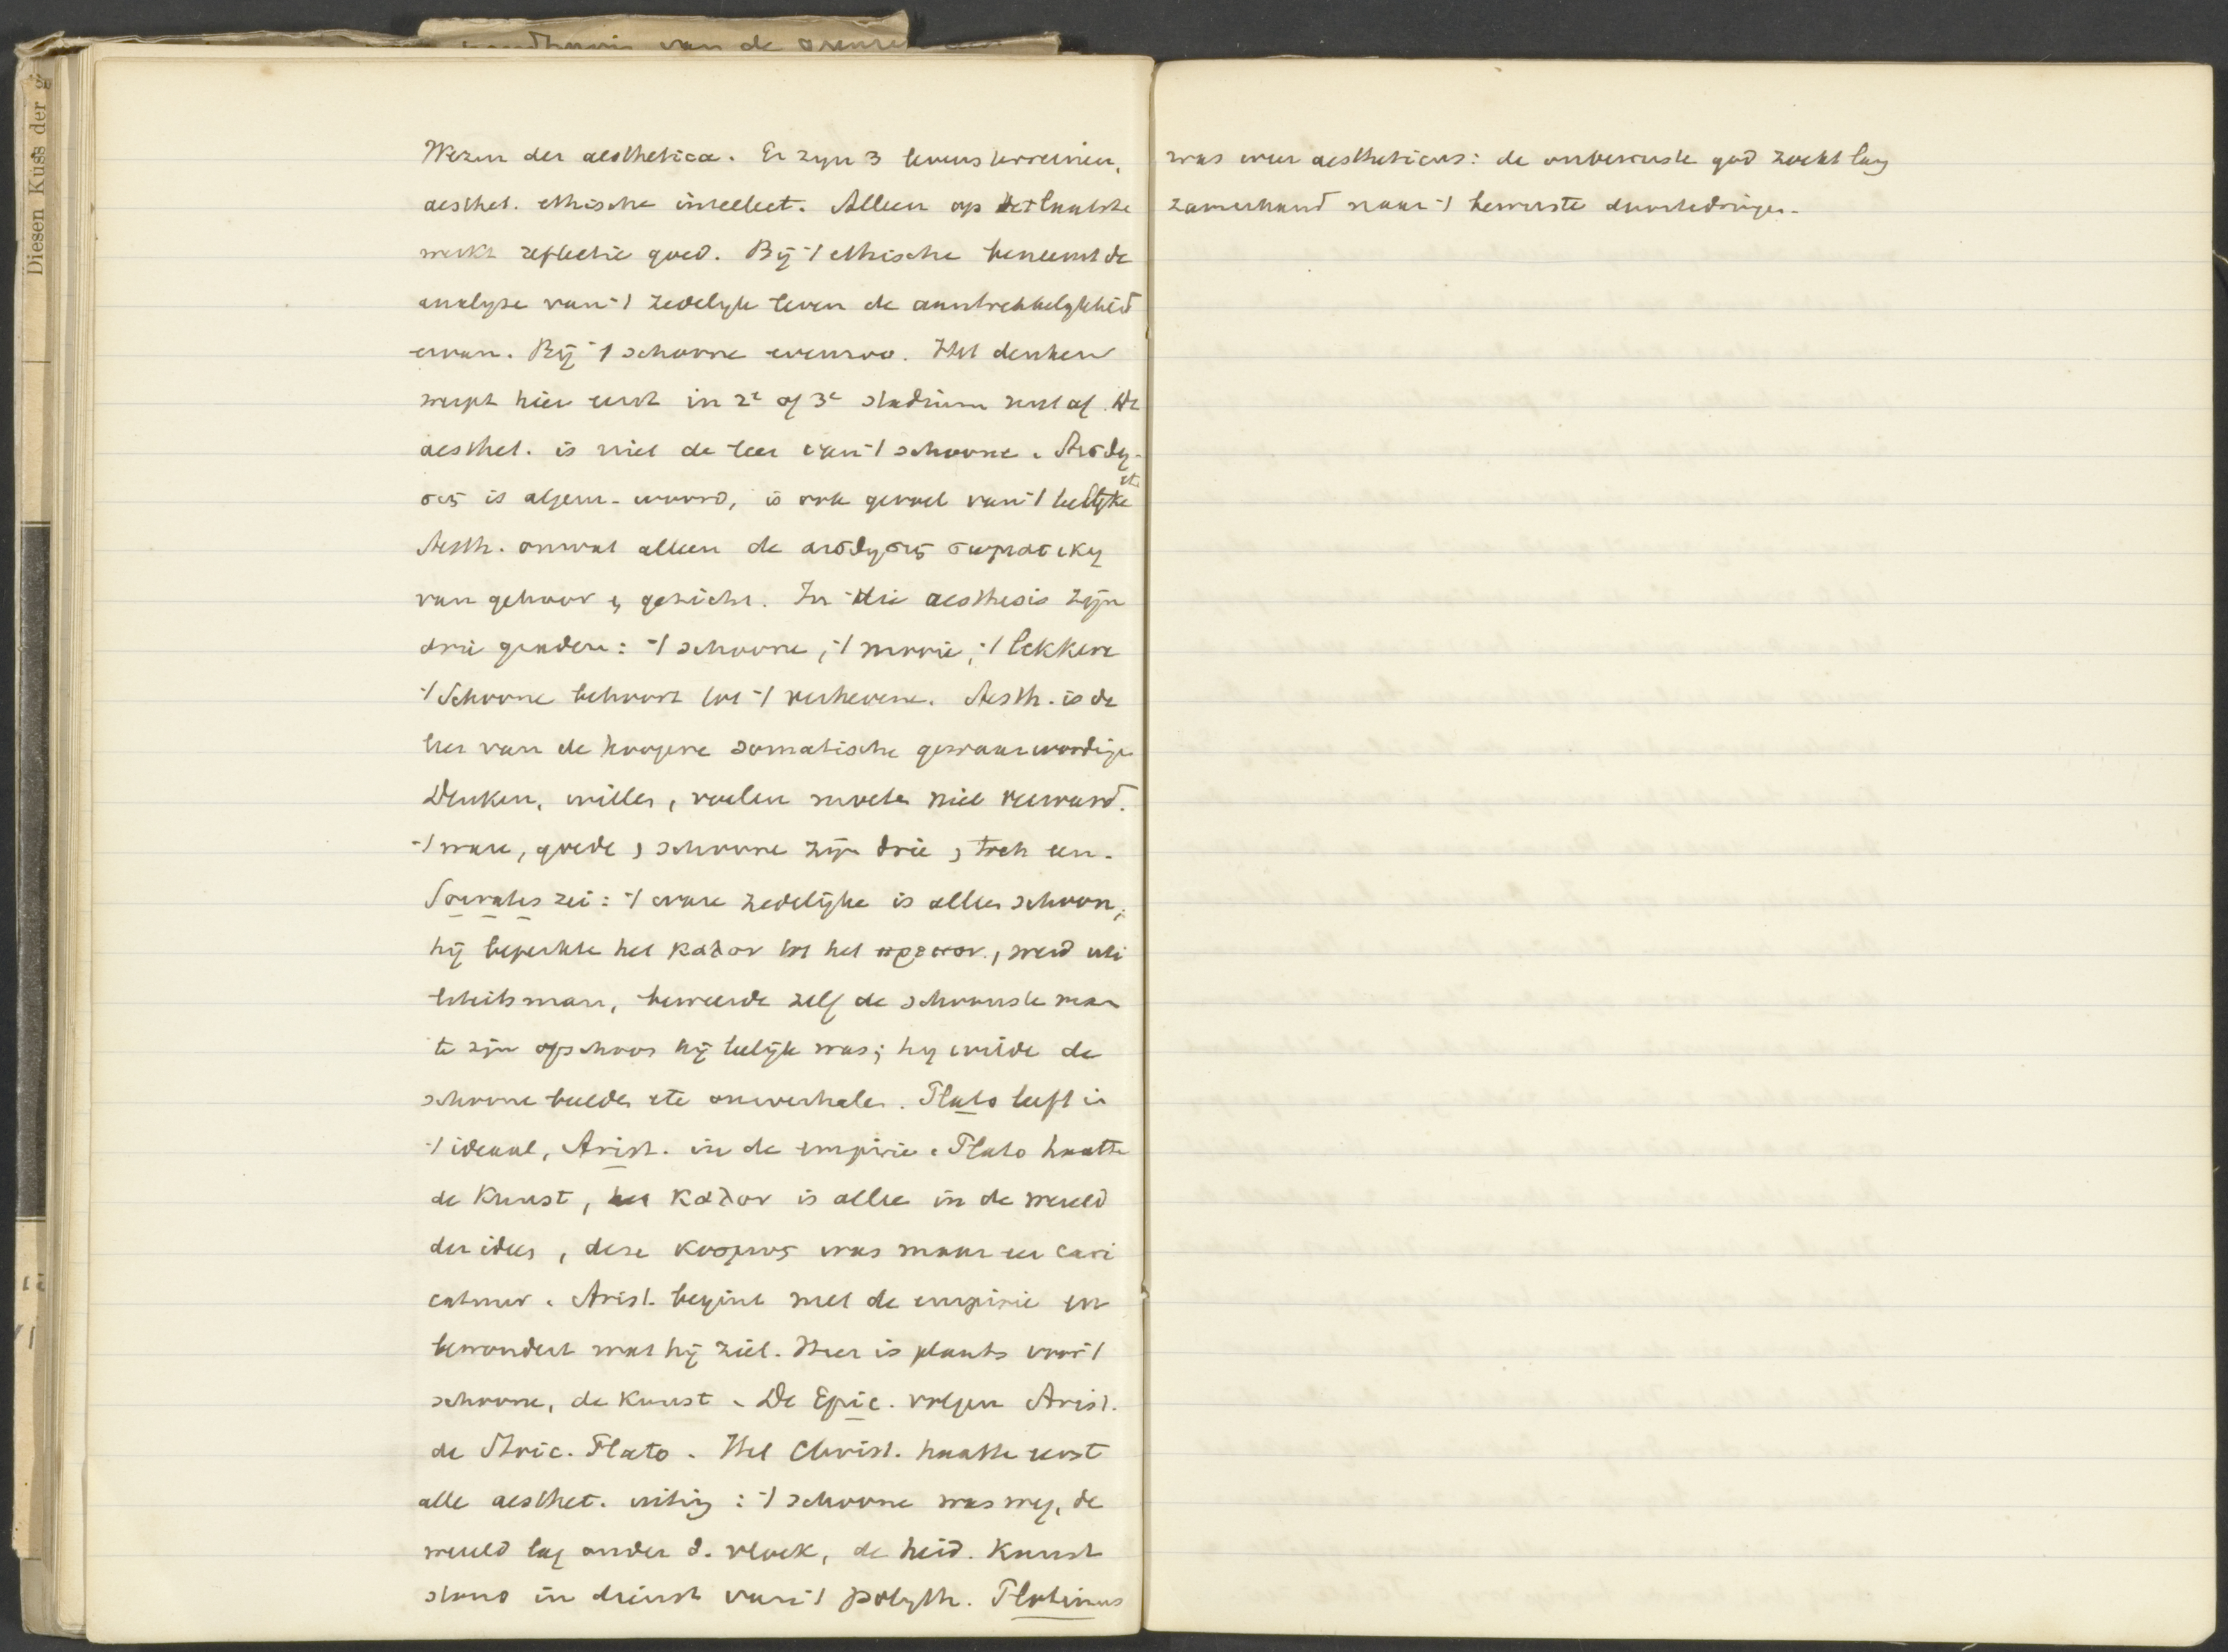 Diesen Kuss der g
van de
Wezen der aesthetica. Er zijn 3 levensterreinen,
aesthet. ethische intellect. Alleen op het laatste
werkt reflectie goed. Bij 't ethische beneemt de
analyse van 't zedelijk leven de aantrekkelijkheid
ervan. Bij 't schoone evenzoo. Het denken
werpt hier eerst in 2e of 3e stadium nut af. De
aesthet. is niet de leer van 't schoone. Αισθη-
σις is algem. woord, is ook gevoel van 't leelijke etc
Aesth. omvat alleen de αισθησις σωματικη
van gehoor en gezicht. In die aesthesis zijn
drie graden: 't schoone, 't mooie, 't lekkere
't Schoone behoort tot 't verhevene. Aesth. is de
leer van de hoogere somatische gewaarwordingen
Denken, willen, voelen moeten niet verward.
't ware, goede, schoone zijn drie, toch een.
Socrates zei: 't ware zedelijke is alleen schoon,
hij beperkte het καλον tot het πρεπον, werd uti
liteitsman, beweerde zelf de schoonste man
te zijn ofschoon hij leelijk was; hij wilde de
schoone beelden etc omverhalen. Plato leeft in
't ideaal, Arist. in de empirie. Plato haatte
de Kunst, het καλον is alleen in de wereld
der ideen, deze κοσμος was maar een cari
catuur. Arist. begint met de empirie en
bewondert wat hij ziet. Hier is plaats voor 't
schoone, de Kunst. De Epic. volgen Arist.
de Stoic. Plato. Het Christ. haatte eerst
alle aesthet. uiting: 't schoone was weg, de
wereld lag onder d. vloek, de heid. Kunst
stond in dienst van 't polyth. Plotinus
was weer aestheticus: de onbewuste god zoekt lang
zamerhand naar 't bewuste door te dringen.